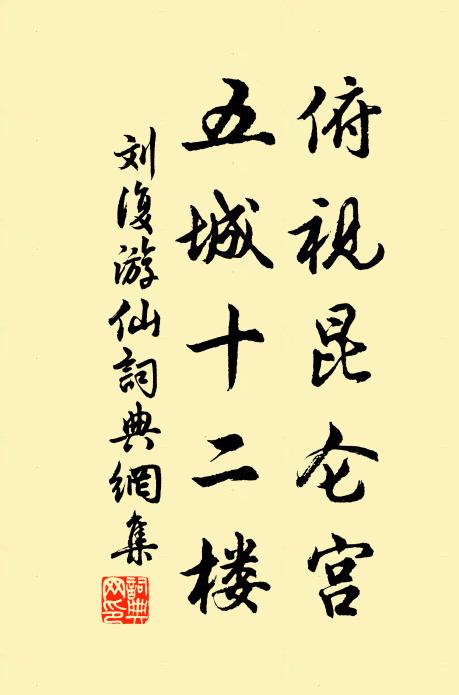 俯视昆仑宫
五城十二楼
刘復游仙詞典網集
詞典网印